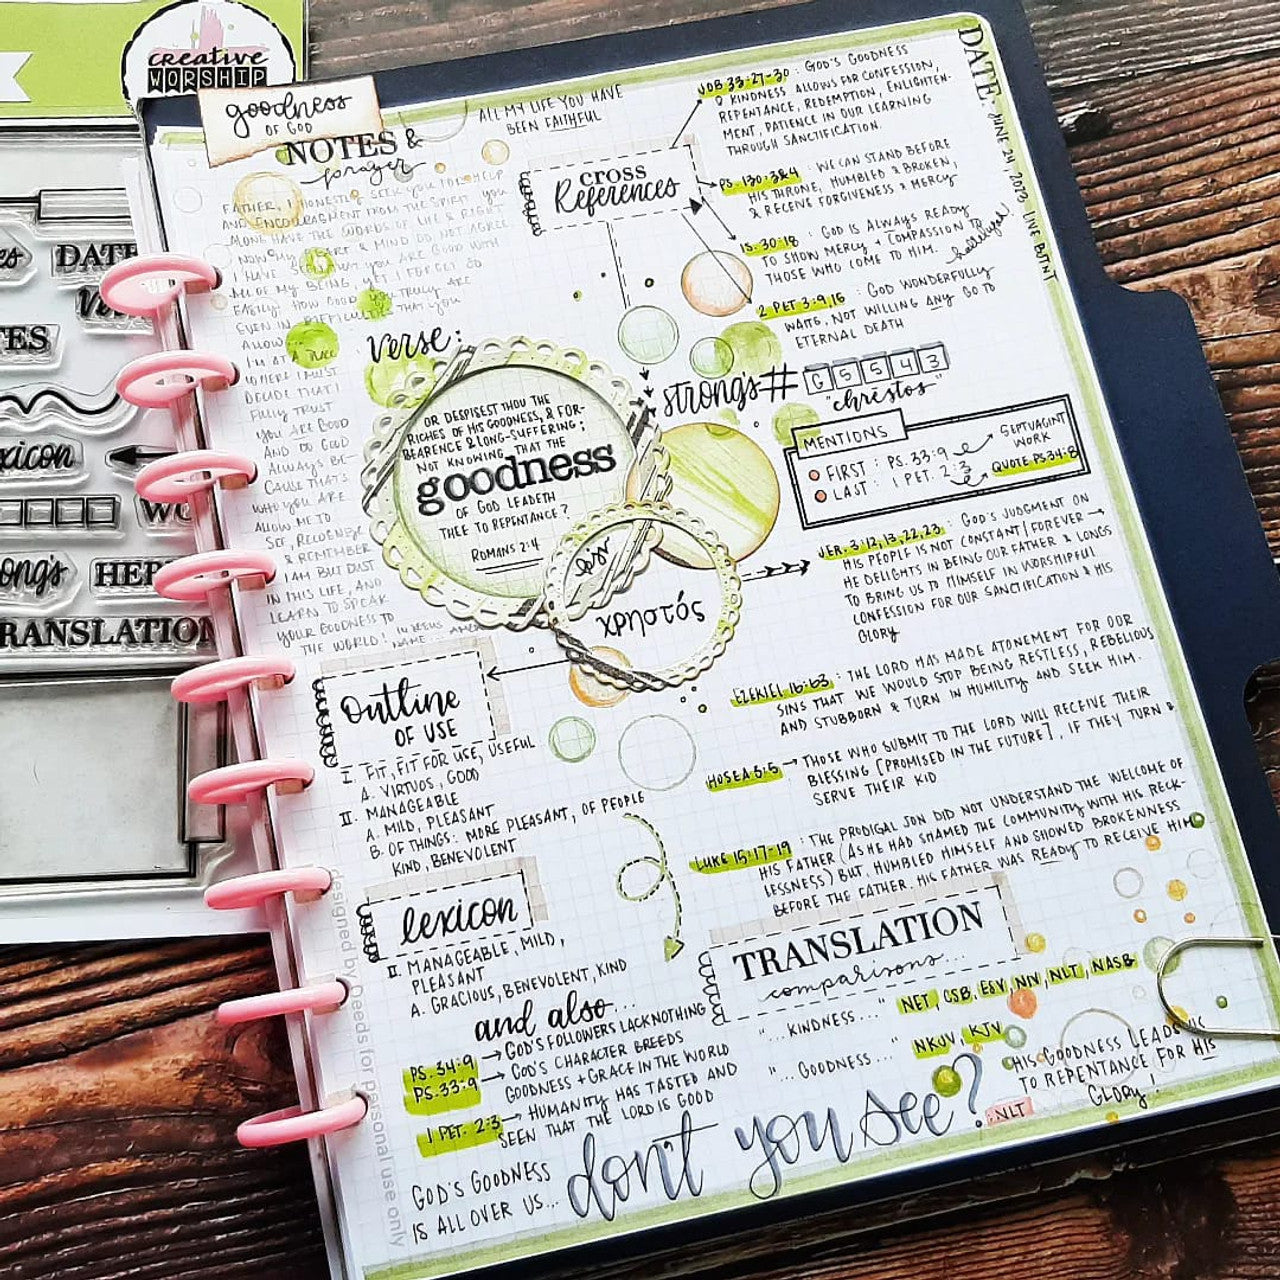 creative
WORSHIP
goodness
OF GOD
NOTES &
prayer
ALL MY LIFE YOU HAVE
BEEN FAITHFUL
DATE: JUNE 24, 2023
FATHER, I HONESTLY SEEK YOU FOR HELP
AND ENCOURAGMENT FROM THE SPIRIT. YOU
ALONE HAVE THE WORDS OF LIFE & RIGHT
NOW MY HEART & MIND DO NOT AGREE
I HAVE SEEN THAT YOU ARE GOOD WITH
ALL OF MY BEING, YET I FORGET SO
EASILY HOW GOOD YOU TRULY ARE
EVEN IN DIFFICULTIES THAT YOU
ALLOW
I'M AT A
WHERE I MUST
DECIDE THAT I
FULLY TRUST
YOU ARE GOOD
AND DO GOOD
ALWAYS BE-
CAUSE THAT'S
WHO YOU ARE.
ALLOW ME TO
SEE, RECOGNIZE
& REMEMBER
I AM BUT DUST
IN THIS LIFE, AND
LEARN TO SPEAK
YOUR GOODNESS TO
THE WORLD! IN JESUS
NAME AMEN
CROSS
References
JOB 33:27-30 : GOD'S GOODNESS
& KINDNESS ALLOWS FOR CONFESSION,
REPENTANCE, REDEMPTION, ENLIGHTEN-
MENT, PATIENCE IN OUR LEARNING
THROUGH SANCTIFICATION.
PS. 130:3&4 : WE CAN STAND BEFORE
HIS THRONE, HUMBLED & BROKEN,
& RECEIVE FORGIVENESS & MERCY
IS. 30:18 : GOD IS ALWAYS READY
TO SHOW MERCY + COMPASSION TO
THOSE WHO COME TO HIM.
2 PET 3:9,15 : GOD WONDERFULLY
WAITS, NOT WILLING ANY GO TO
ETERNAL DEATH
verse:
OR DESPISEST THOU THE
RICHES OF HIS GOODNESS, & FOR-
BEARENCE & LONG-SUFFERING;
NOT KNOWING THAT THE
goodness
OF GOD LEADETH
THEE TO REPENTANCE?
ROMANS 2:4
χρηστός
strong's # G5543
"chrēstos"
MENTIONS
FIRST : PS. 33:9
LAST : 1 PET. 2:3
SEPTUAGINT
WORK
QUOTE PS 34:8
JER. 3:12,13,22,23 : GOD'S JUDGMENT ON
HIS PEOPLE IS NOT CONSTANT/FOREVER →
HE DELIGHTS IN BEING OUR FATHER & LONGS
TO BRING US TO HIMSELF IN WORSHIPFUL
CONFESSION FOR OUR SANCTIFICATION & HIS
GLORY
EZEKIEL 16:63 : THE LORD HAS MADE ATONEMENT FOR OUR
SINS THAT WE WOULD STOP BEING RESTLESS, REBELIOUS
AND STUBBORN & TURN IN HUMILITY AND SEEK HIM.
HOSEA 3:5 → THOSE WHO SUBMIT TO THE LORD WILL RECEIVE THEIR
BLESSING [PROMISED IN THE FUTURE], IF THEY TURN &
SERVE THEIR KID
LUKE 15:17-19 : THE PRODIGAL SON DID NOT UNDERSTAND THE WELCOME OF
HIS FATHER (AS HE HAD SHAMED THE COMMUNITY WITH HIS RECK-
LESSNESS) BUT, HUMBLED HIMSELF AND SHOWED BROKENNESS
BEFORE THE FATHER. HIS FATHER WAS READY TO RECEIVE HIM
Outline
OF USE
I. FIT, FIT FOR USE, USEFUL
A. VIRTUOS, GOOD
II. MANAGEABLE
A. MILD, PLEASANT
B. OF THINGS: MORE PLEASANT, OF PEOPLE
KIND, BENEVOLENT
lexicon
II. MANAGEABLE, MILD,
PLEASANT
A. GRACIOUS, BENEVOLENT, KIND
and also...
PS. 34:9 → GOD'S FOLLOWERS LACK NOTHING
PS. 33:9 → GOD'S CHARACTER BREEDS
GOODNESS + GRACE IN THE WORLD
1 PET. 2:3 → HUMANITY HAS TASTED AND
SEEN THAT THE LORD IS GOOD
TRANSLATION
comparisons...
"...KINDNESS..." NET, CSB, ESV, NIV, NLT, NASB
"...GOODNESS..." NKJV, KJV
GOD'S GOODNESS
IS ALL OVER US...
don't you see?
:NLT
HIS GOODNESS LEADS US
TO REPENTANCE FOR HIS
GLORY!
designed by beeds for personal use only
DATE
TES
xicon
ong's
HE
RANSLATION